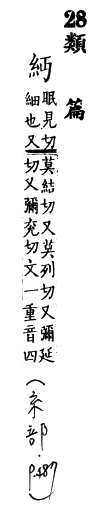 28
類篇
眠見切
細也又
莫結切又莫列切又彌延
切又彌兖切文一重音四
(糸部.P.487)